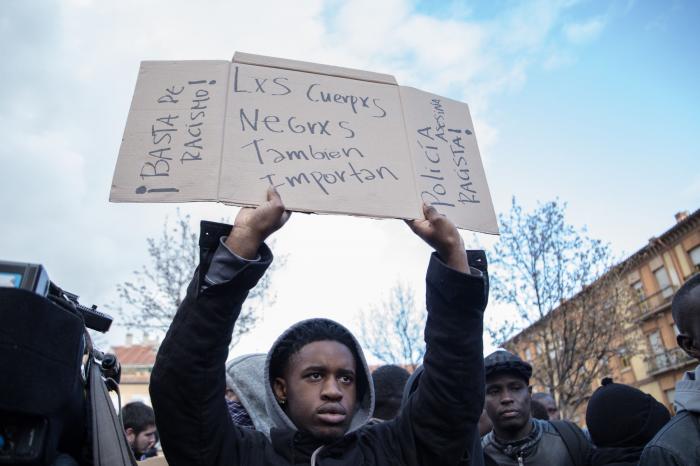 ¡BASTA DE
RACISMO!
LXS CUERPXS
NEGRXS
TAMBIÉN
IMPORTAN
POLICÍA
ASESINA
RACISTA!